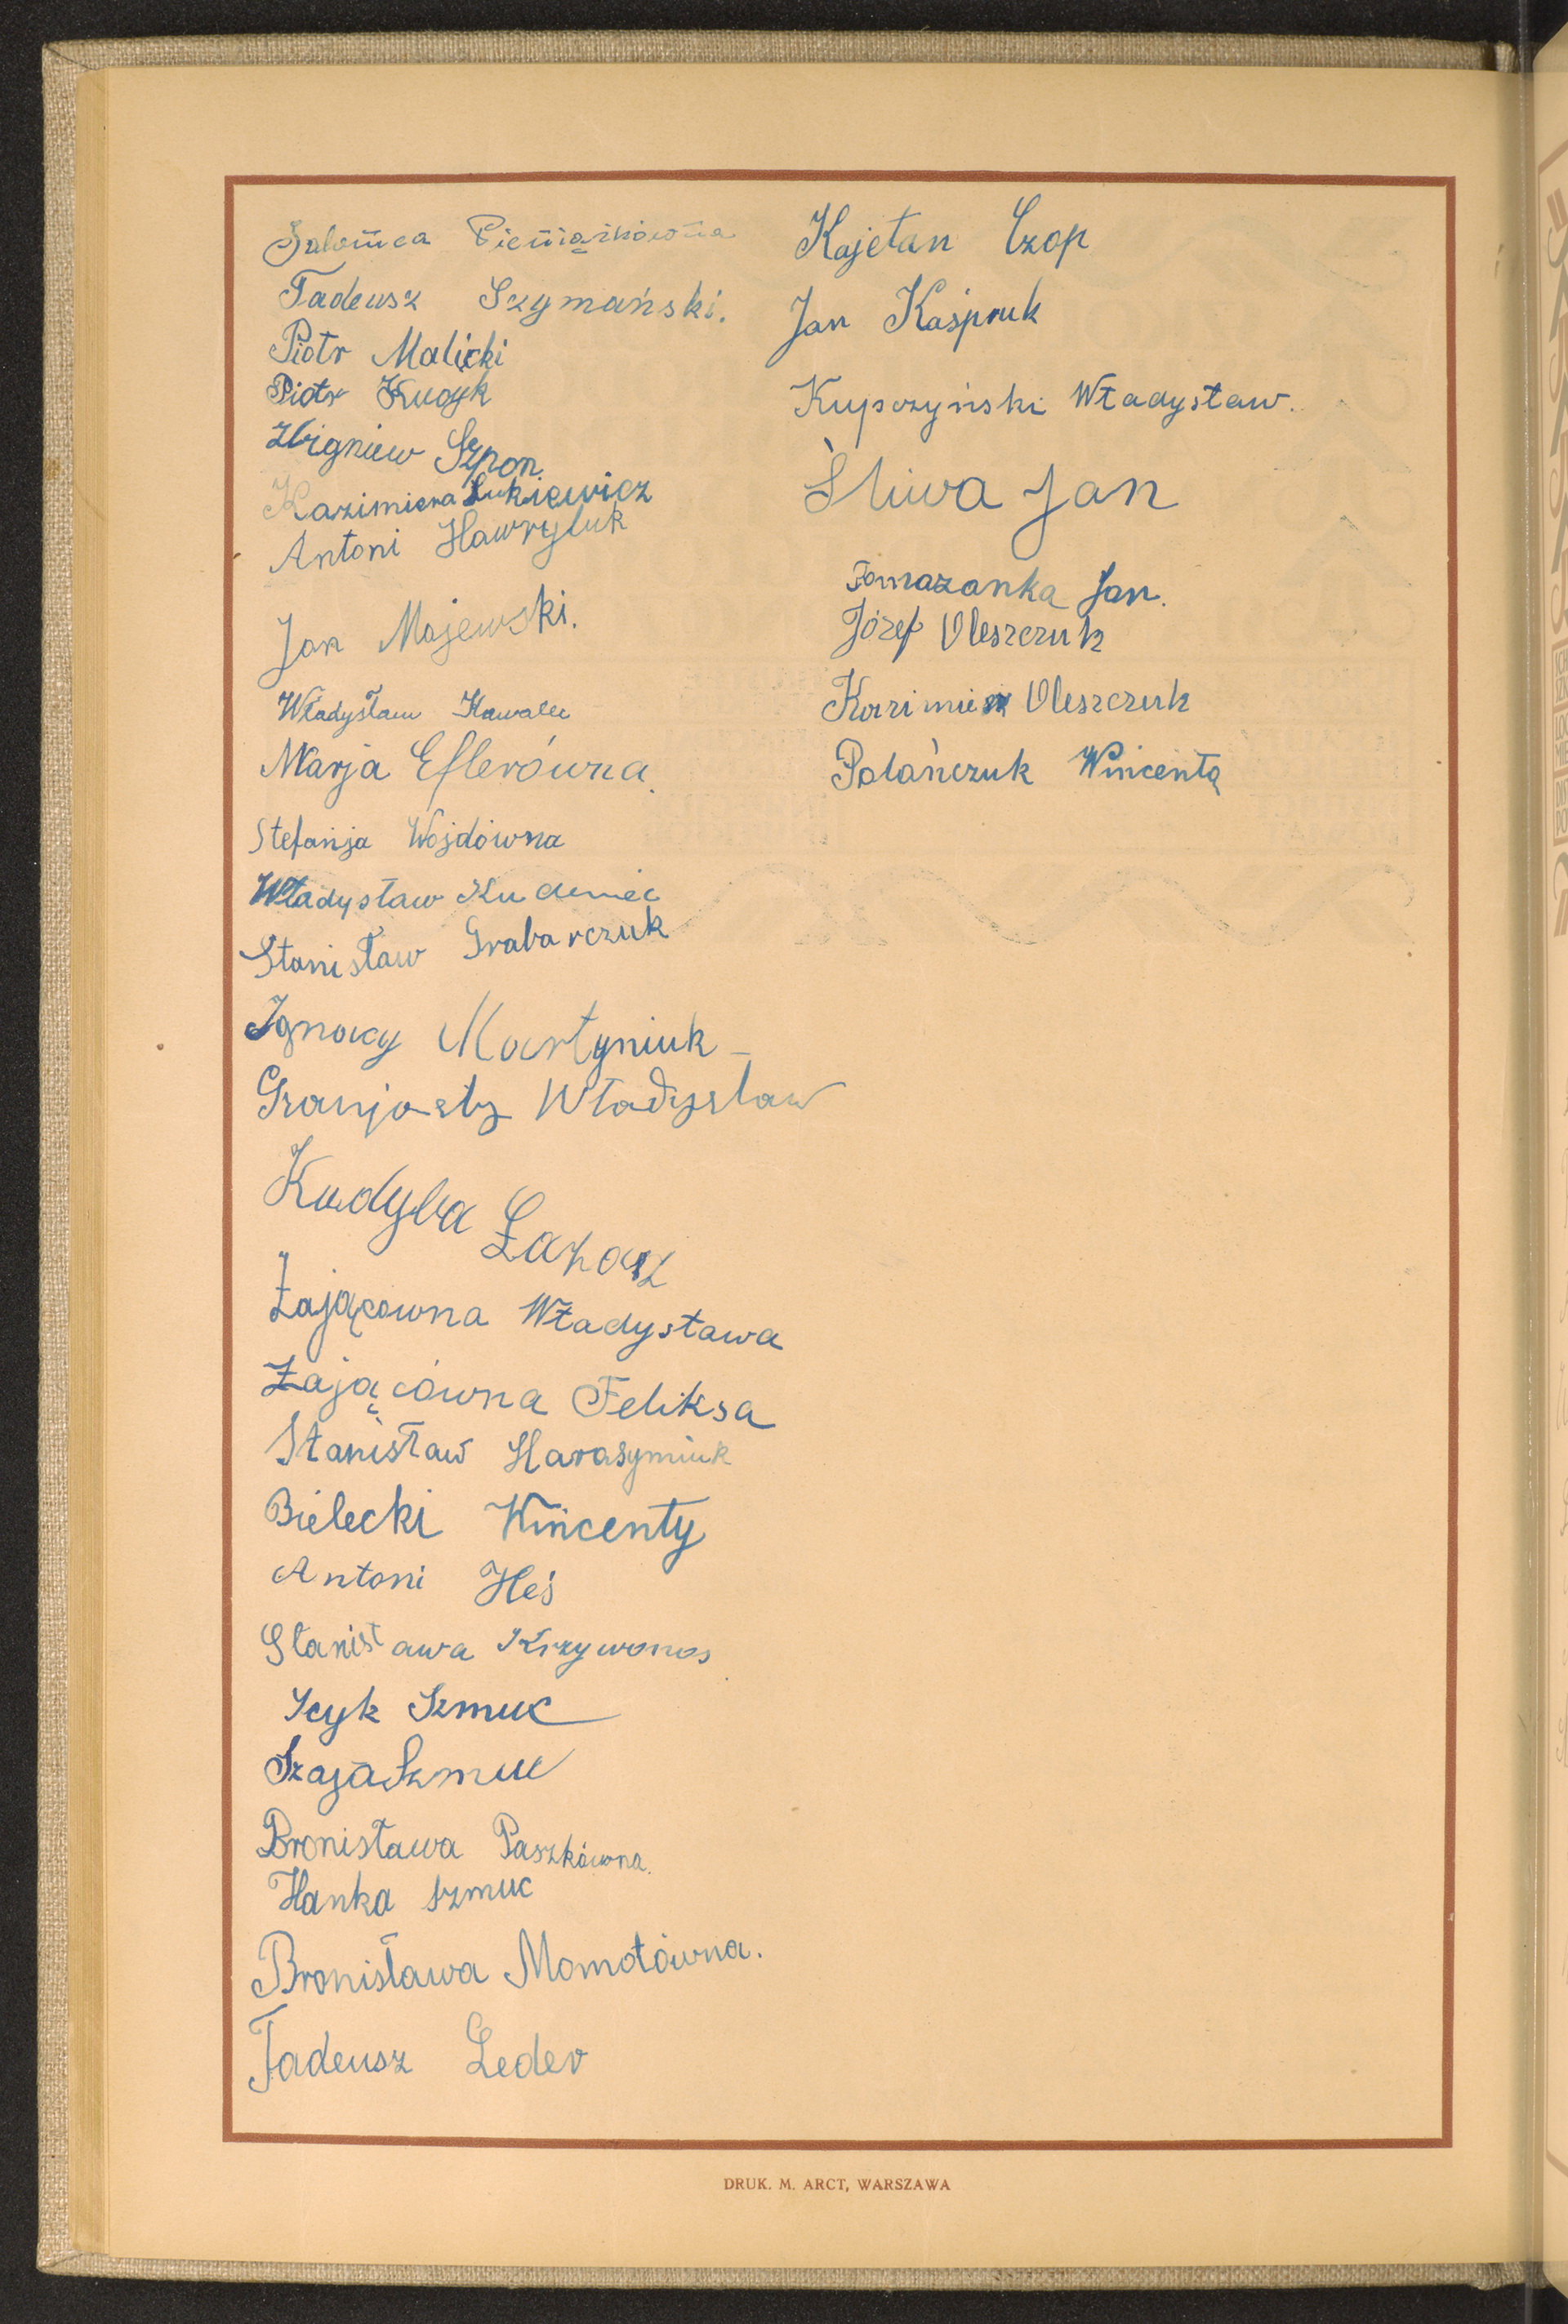 Tadeusz Szymański.
Piotr Malicki
Piotr
Zbigniew Szpon
Kazimiera Łukiewicz
Antoni Hawryluk
Jan Majewski.
Władysław Kawalec
Marja Eflerówna.
Stefanja Wojdówna
Władysław
Stanisław Grabarczuk
Ignacy Martyniuk
Władysław
Kudyba Łazarz
Zającowna Władysława
Zającówna Feliksa
Stanisław Harasymiuk
Bielecki Wincenty
Antoni Heś
Stanisława Krzywonos
Icyk Szmuc
Szaja Szmuc
Bronisława Paszkówna.
Hanka Szmuc
Bronisława Momotówna.
Tadeusz Leder
Kajetan Czop
Jan Kaśpruk
Kupczyński Władysław.
Śliwa Jan
Jan.
Józef Oleszczuk
Kazimierz Oleszczuk
Polańczuk Wincenta
DRUK. M. ARCT, WARSZAWA